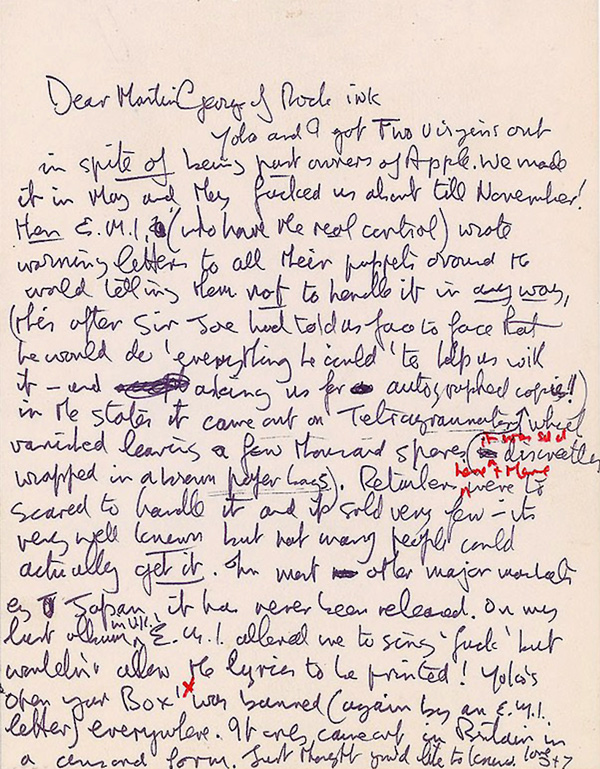 Dear Martin George of Rock ink
Yoko and I got Two Virgins out
in spite of being part owners of Apple. We made
it in May and they fucked us about till November!
Then E.M.I. (who have the real control) wrote
warning letters to all their puppets around the
world telling them not to handle it in any way,
(this after Sir Joe had told us face to face that
he would do 'everything he could' to help us with
it – and asking us for autographed copies!!)
in the states it came out on Tetragrammaton which
vanished leaving a few thousand spare, (it was sold discreetly
wrapped in a brown paper bag). Retailers here + there were to
scared to handle it and it sold very few – its
very well known but not many people could
actually get it. In most other major markets
eg Japan, it has never been released. On my
last album, in U.K. E.M.I. allowed me to sing 'fuck' but
wouldn't allow the lyrics to be printed! Yoko's
'Open your Box' x was banned (again by an E.M.I.
letter) everywhere. It only came out in Britain in
a censored form. Just thought you'd like to know. love J + Y